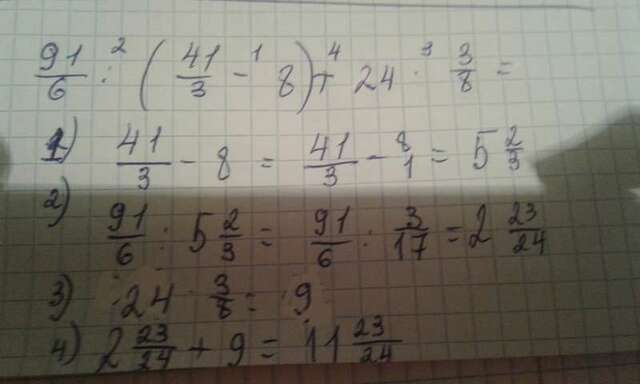 91/6 :² (41/3 -¹ 8) +⁴ 24 ·³ 3/8 =
1) 41/3 - 8 = 41/3 - 8/1 = 5 2/3
2) 91/6 : 5 2/3 = 91/6 · 3/17 = 2 23/24
3) 24 · 3/8 = 9
4) 2 23/24 + 9 = 11 23/24